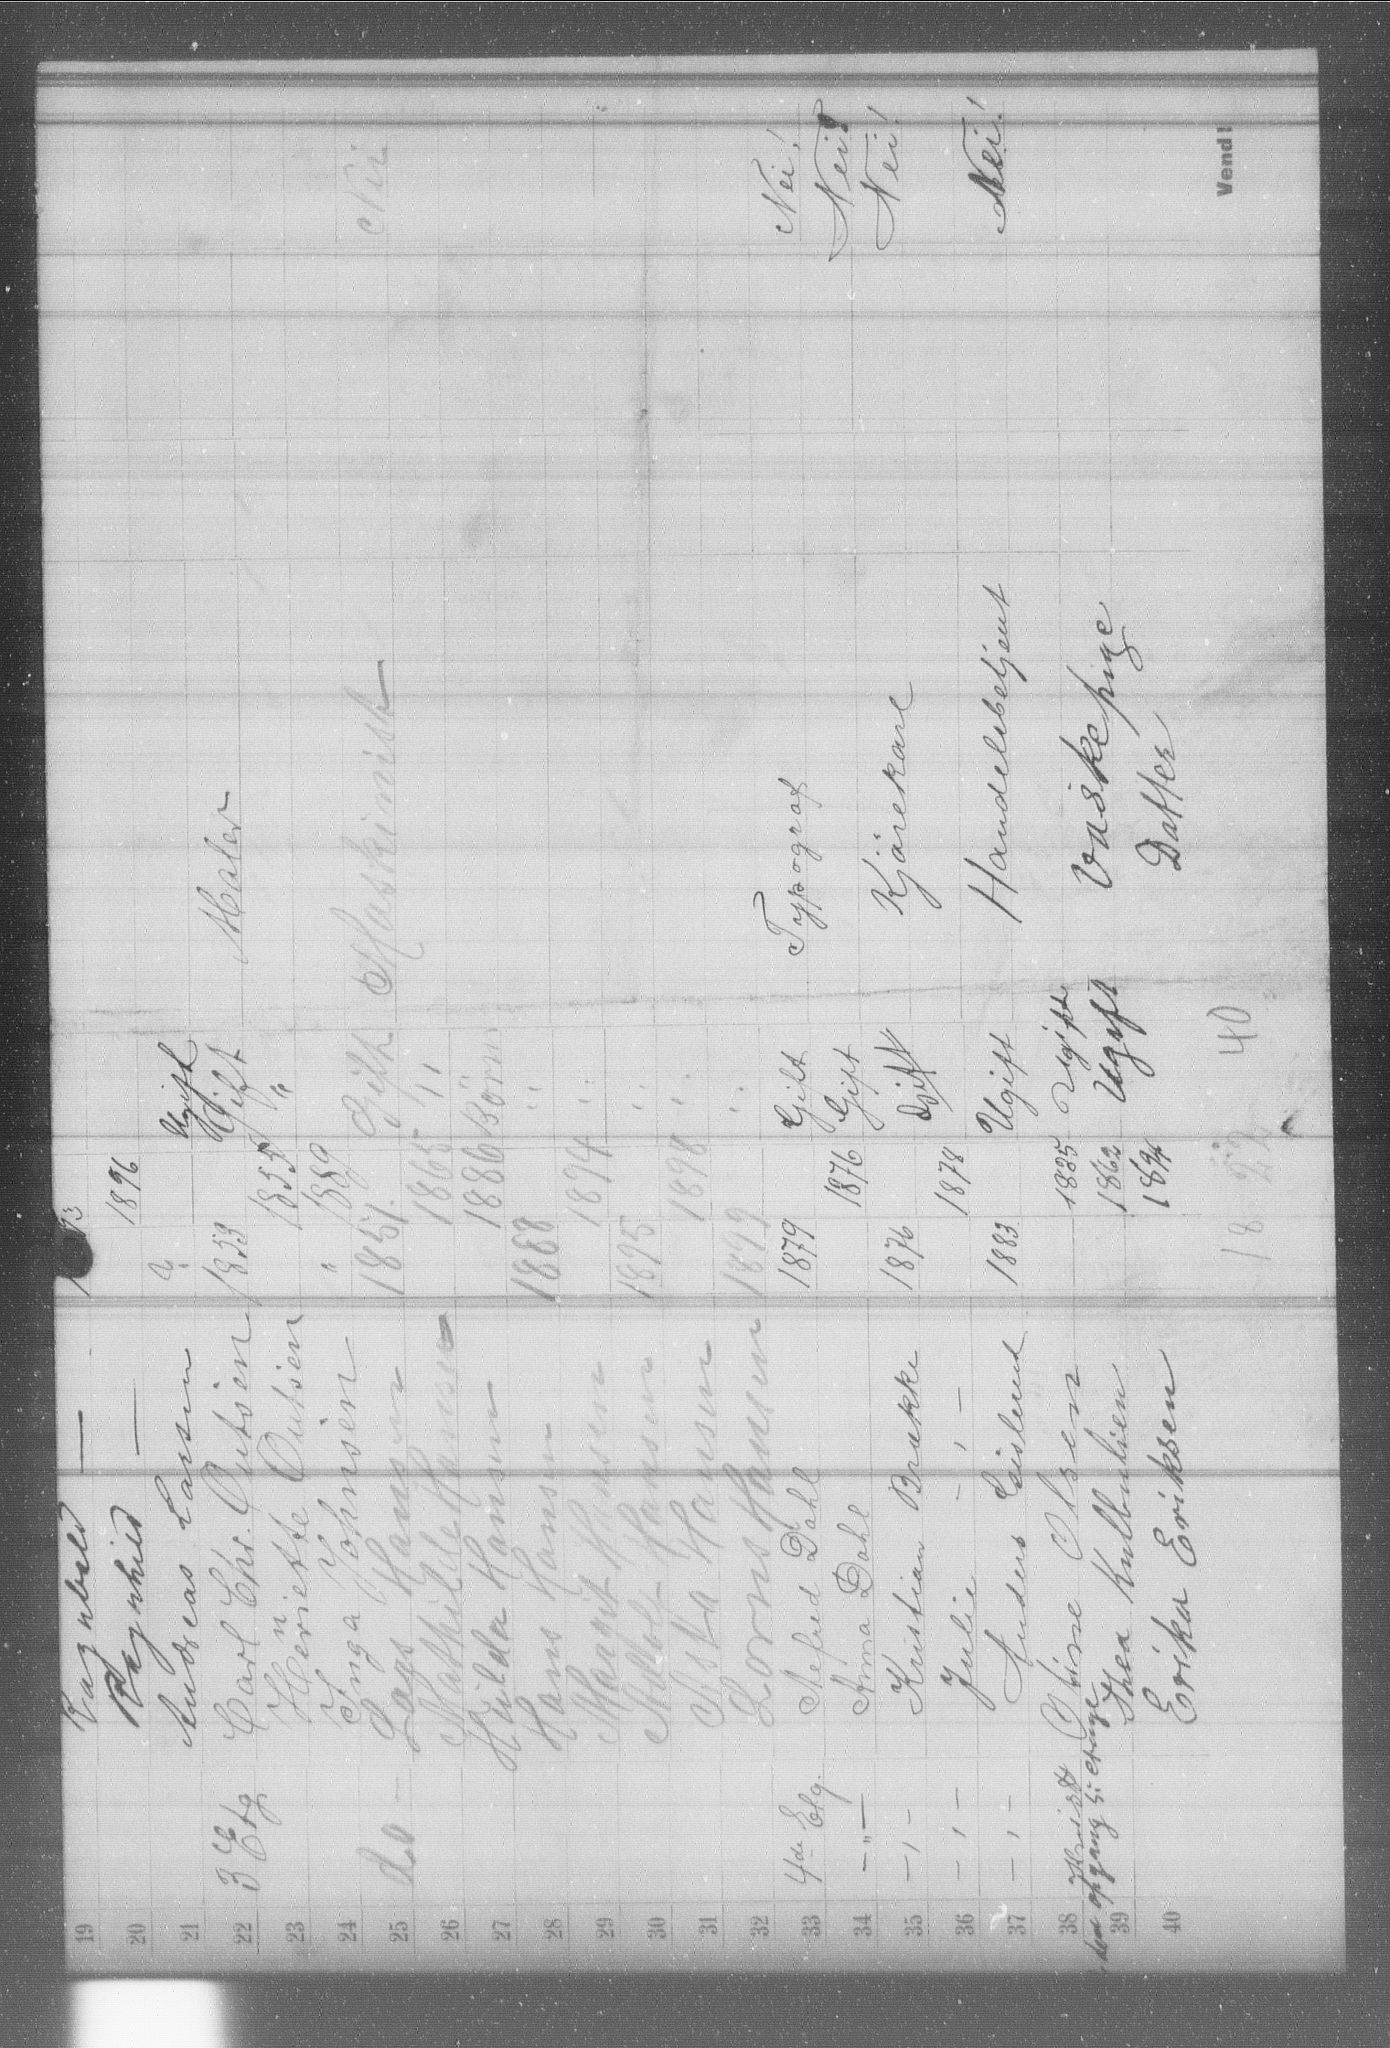 19 Ragnvald — 93
20 Ragnhild — 1896
21 Andreas Larsen Ugift
22 3 Etg Carl Chr. Qutsien 1853 Gift Maler
23 Heriette Qutsien 1855 "
24 Inga Johnsen " 1889
25 do — Lars Hansen 1857 Gift Maskinist Nei
26 Mathilde Hansen 1865 "
27 Hilda Hansen 1886 Börn
28 Hans Hansen 1888 "
29 Margit Hansen 1894 "
30 Adolf Hansen 1895 "
31 Asta Hansen 1898 "
32 Hansen 1899 "
33 4de Etg. Dahl 1879 Gift Typograf Nei!
34 —"— Anna Dahl 1876 Gift Nei!
35 -,- Kristian Brakke 1876 Gift Kjörekarl Nei!
36 -,- Julie -,- 1878
37 -,- Anders 1883 Ugift Handelsbetjent Nei!
38 Kvist Oline Olsen 1885 Ugift
39 opgang Thea 1862 Ugift Vaskepige
40 Erika Eriksen 1894 Datter
18 22 40
Vend!